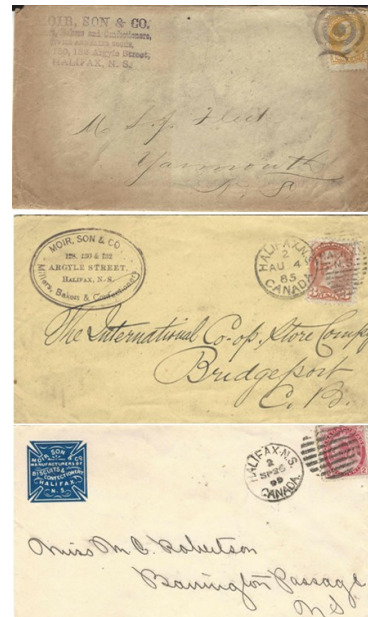 MOIR, SON & CO.
Bakers and Confectioners,
Argyle Street,
HALIFAX, N. S.
Mr
Yarmouth
N.S.
MOIR, SON & CO.
128, 130 & 132
ARGYLE STREET.
HALIFAX, N. S.
Millers, Bakers & Confectioners
HALIFAX, N.S.
2
AU 4
85
CANADA
The International Co-op. Store Compy
Bridgeport
C. B.
MOIR SON & CO
MANUFACTURERS OF
BISCUITS &
CONFECTIONERY
HALIFAX
N.S.
HALIFAX, N.S.
2
SP 26
99
CANADA.
Miss M. C. Robertson
Barrington Passage
N.S.